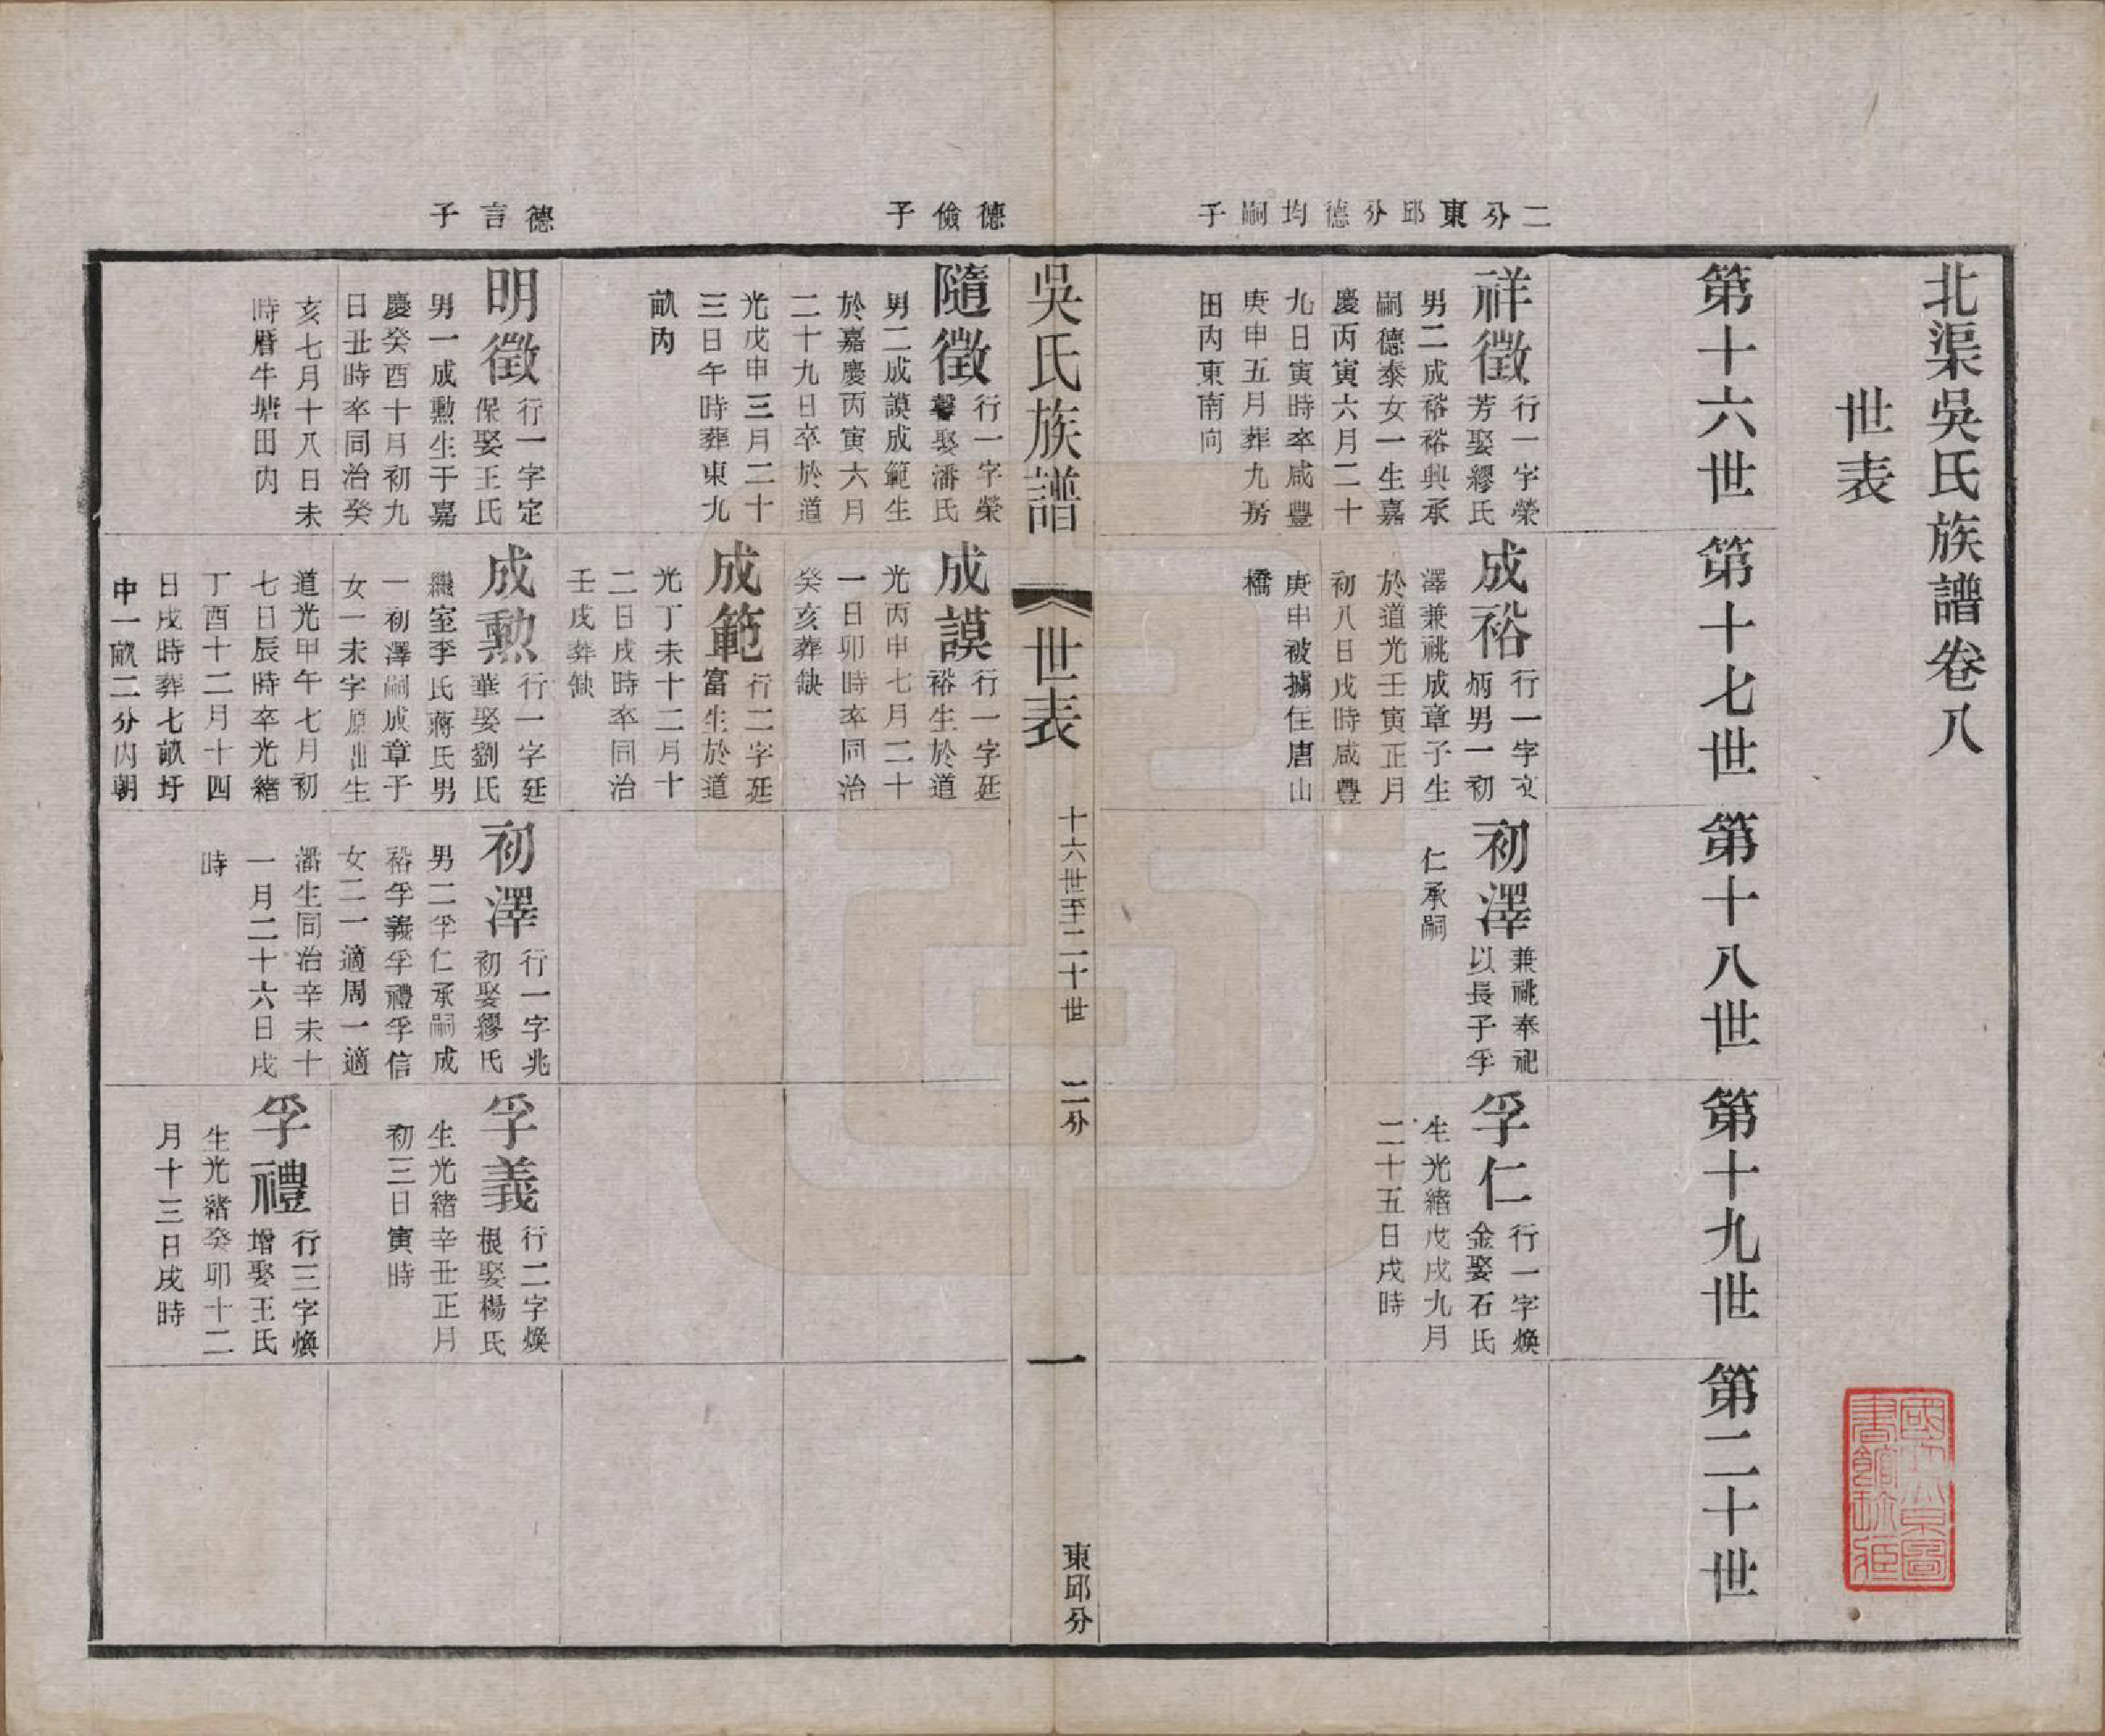 北渠吳氏族譜卷八
世表
第十六世
第十七世
第十八世
第十九世
第二十世
二分東邱分德均嗣子
祥徵
行一字榮
芳娶繆氏
男二成裕裕興承
嗣德泰女一生嘉
慶丙寅六月二十
九日寅時卒咸豐
庚申五月葬九房
田內東南向
成裕
行一字文
炳男一初
澤兼祧成章子生
於道光壬寅正月
初八日戌時咸豐
庚申被擄住唐山
橋
初澤
兼祧奉祀
以長子孚
仁承嗣
孚仁
行一字煥
金娶石氏
生光緒戊戌九月
二十五日戌時
吳氏族譜
世表
十六世至二十世
二分
一
東邱分
德儉子
隨徵
行一字榮
馨娶潘氏
男二成謨成範生
於嘉慶丙寅六月
二十九日卒於道
光戊申三月二十
三日午時葬東九
畝內
成謨
行一字廷
裕生於道
光丙申七月二十
一日卯時卒同治
癸亥葬缺
成範
行二字廷
富生於道
光丁未十二月十
二日戌時卒同治
壬戌葬缺
德言子
明徵
行一字定
保娶王氏
男一成勲生于嘉
慶癸酉十月初九
日丑時卒同治癸
亥七月十八日未
時曆牛塘田內
成勲
行一字廷
華娶劉氏
繼室李氏蔣氏男
一初澤嗣成章子
女一未字原出生
道光甲午七月初
七日辰時卒光緒
丁酉十二月十四
日戌時葬七畝圩
中一畝二分內朝
初澤
行一字兆
初娶繆氏
男二孚仁承嗣成
裕孚義孚禮孚信
女二一適周一適
潘生同治辛未十
一月二十六日戌
時
孚義
行二字煥
根娶楊氏
生光緒辛丑正月
初三日寅時
孚禮
行三字煥
增娶王氏
生光緒癸卯十二
月十三日戌時